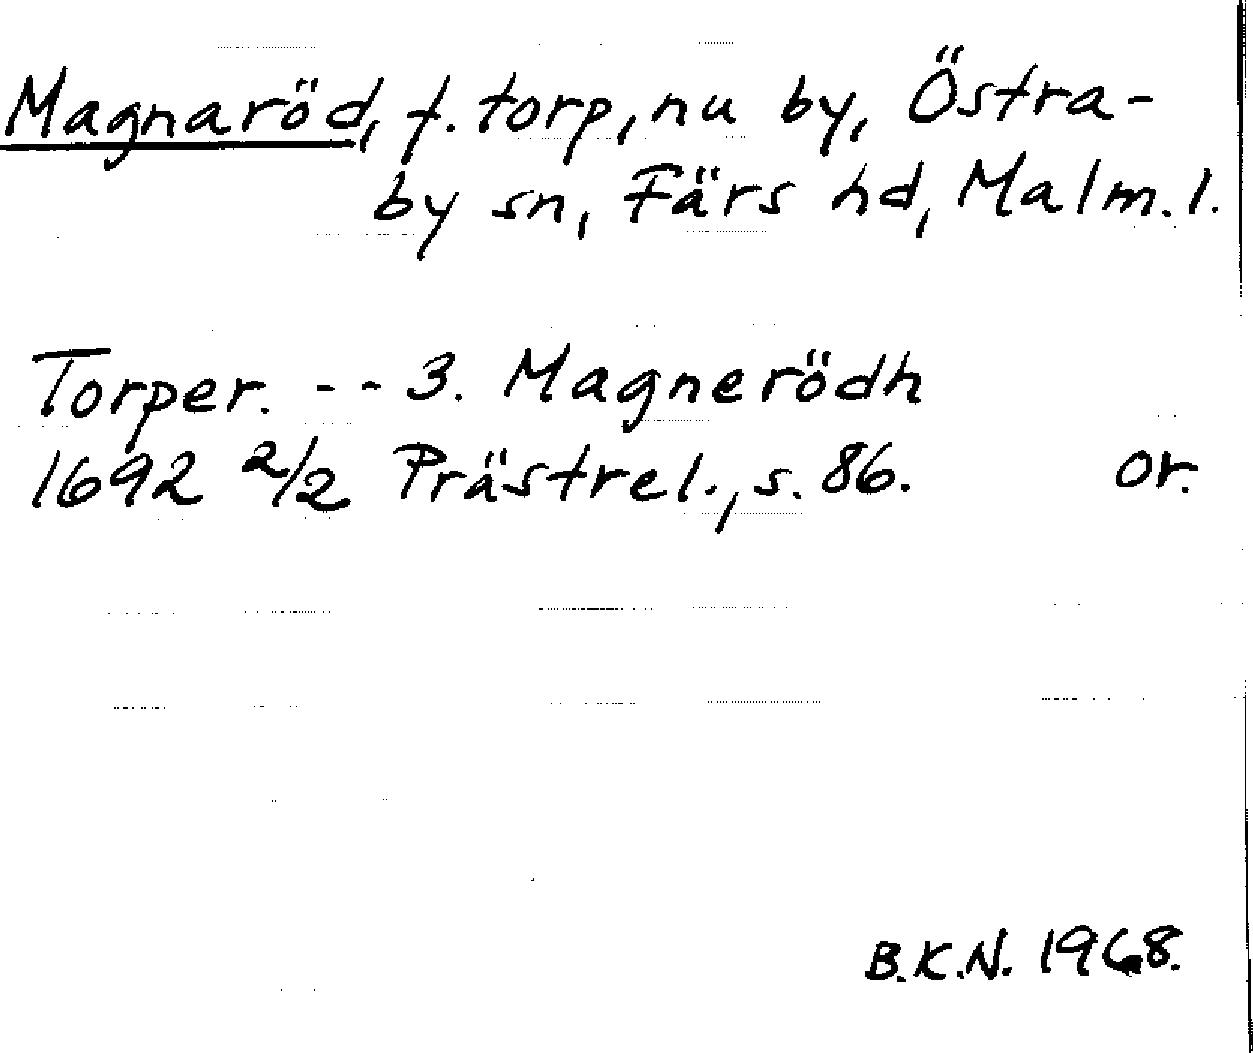 Magnaröd, f. torp, nu by, Östra-
by sn, Färs hd, Malm. l.
Torper. - - 3. Magnerödh
1692 2/2 Prästrel., s. 86. or.
B.K.N. 1968.